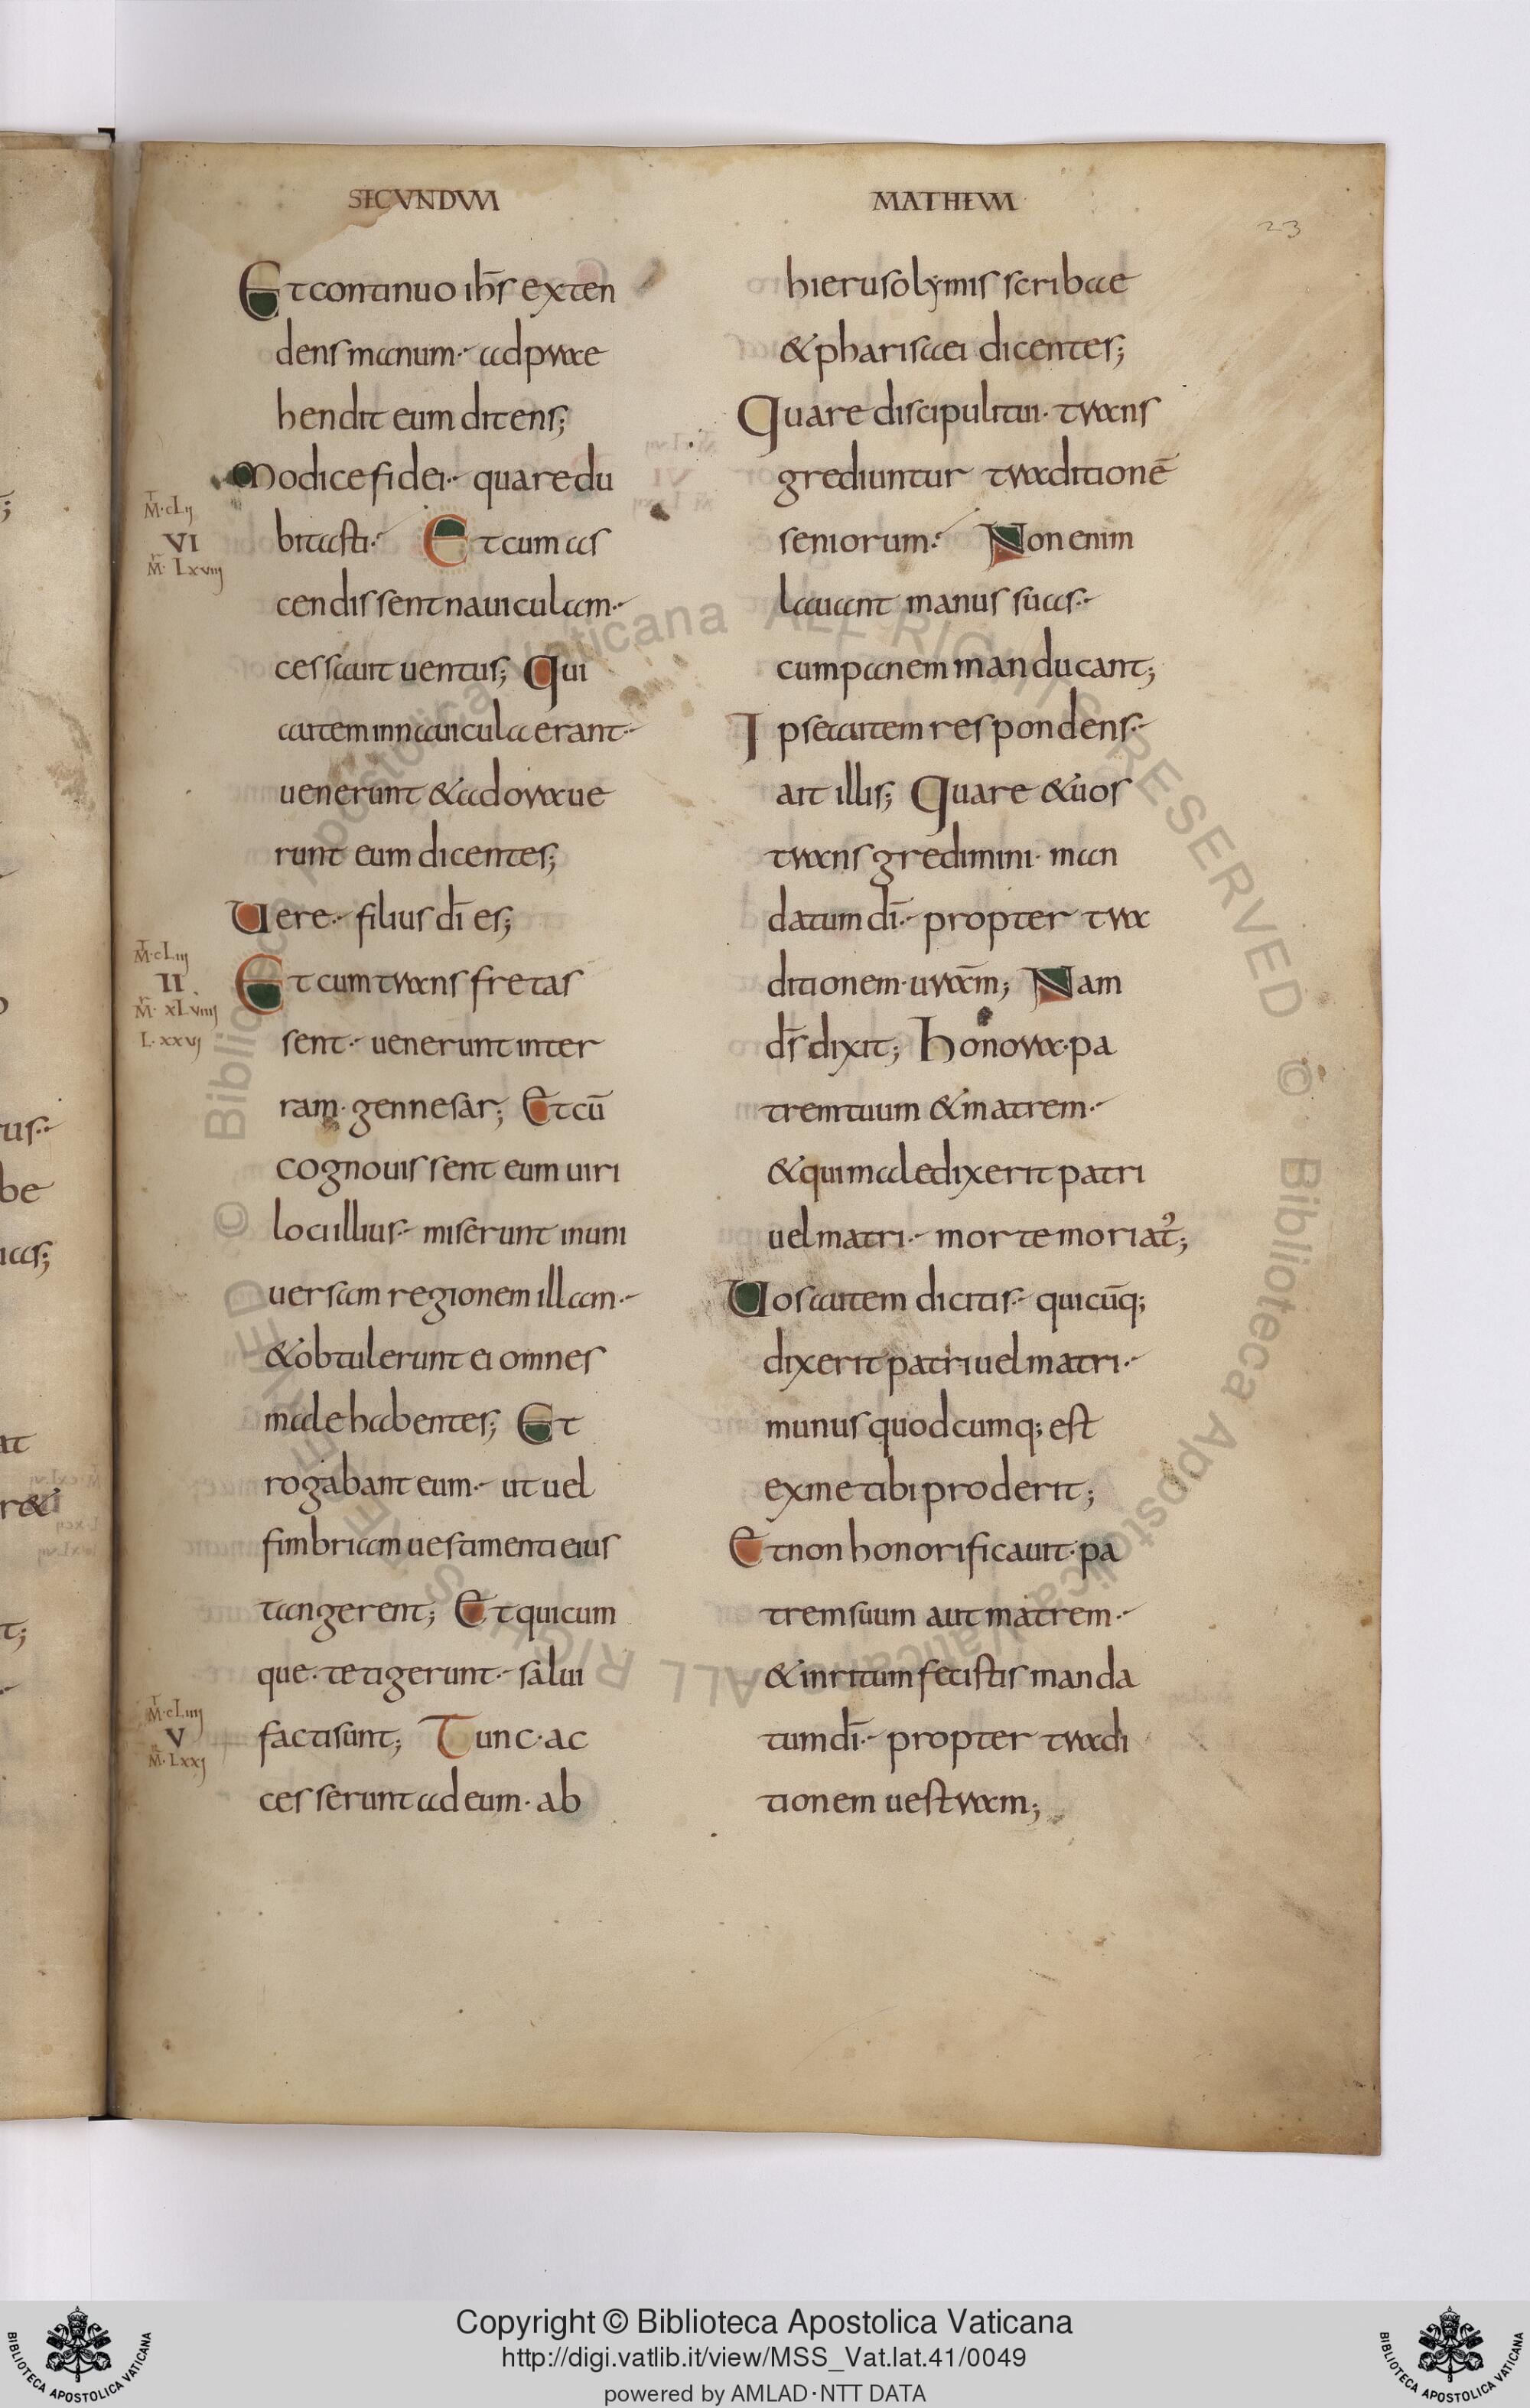 SECVNDVM
MATHEVM
23
Et continuo ihs̄ exten
dens manum· adprae
hendit eum dicens;
Modice fidei· quare du
bitasti· Et cum as
cendissent nauiculam·
cessauit uentus; Qui
autem in nauicula erant·
uenerunt & adoraue
runt eum dicentes;
Uere· filius dī es;
Et cum transfretas
sent· uenerunt inter
ram· gennesar; Et cū
cognouissent eum uiri
loci illius· miserunt in uni
uersam regionem illam·
& obtulerunt ei omnes
male habentes; Et
rogabant eum· ut uel
fimbriam uestimenti eius
tangerent; Et quicum
que· tetigerunt· salui
facti sunt; Tunc· ac
cesserunt ad eum· ab
M·cLij
VI
M· Lxviiij
M·cLiij
II
M· xLviiij
L·xxvj
M·cLiiij
V
M·Lxxj
hierusolymis scribae
& pharisaei dicentes;
Quare discipuli tui· trans
grediuntur traditionē
seniorum· Non enim
lauant manus suas·
cum panem manducant;
Ipse autem respondens·
ait illis; Quare & uos
transgredimini· man
datum dī· propter tra
ditionem· uram̄; Nam
ds̄ dixit; Honora· pa
trem tuum & matrem·
& qui maledixerit patri
uel matri· morte moriat᷒;
Uos autem dicitis· quicūq;
dixerit patri uel matri·
munus quodcumq; est
ex me tibi proderit;
Et non honorificauit· pa
trem suum aut matrem·
& inritum fecistis manda
tum dī· propter tradi
tionem uestram;
Copyright © Biblioteca Apostolica Vaticana
http://digi.vatlib.it/view/MSS_Vat.lat.41/0049
powered by AMLAD·NTT DATA
BIBLIOTECA APOSTOLICA VATICANA
BIBLIOTECA APOSTOLICA VATICANA